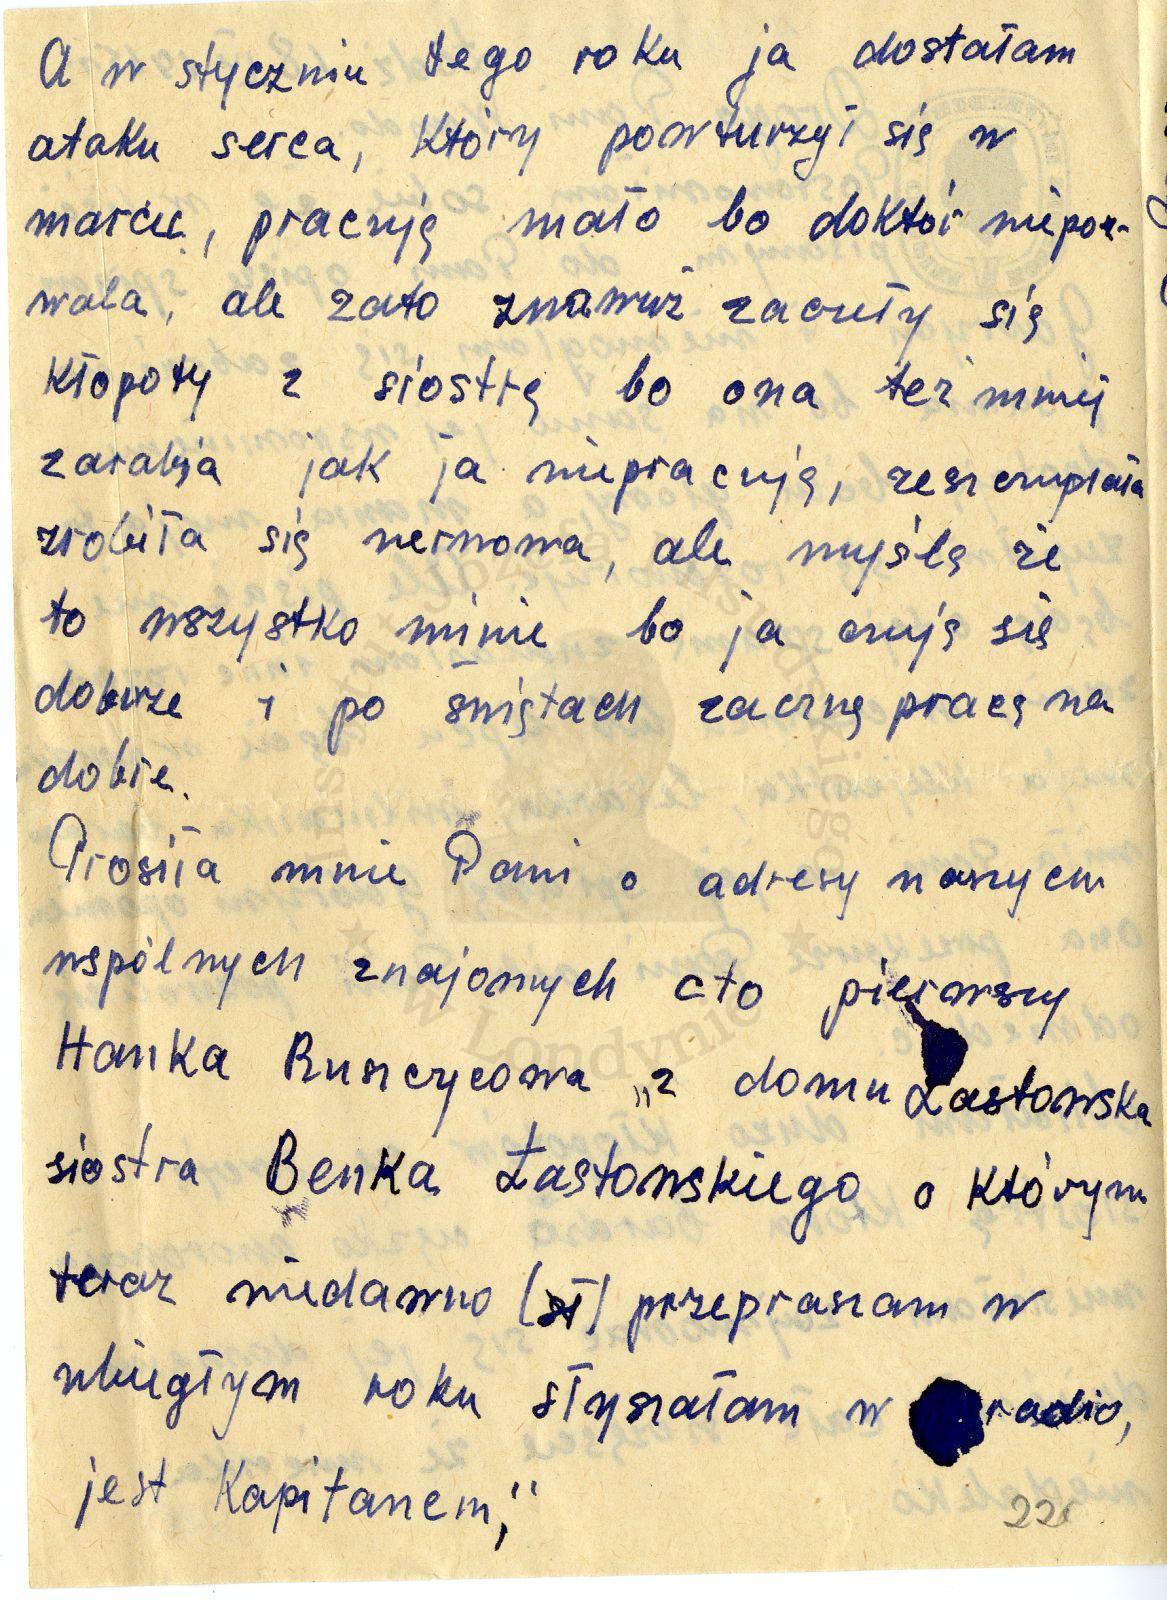 A w styczniu tego roku ja dostałam
ataku serca, który powturzył się w
marcu, pracują mało bo doktór niepoz-
wala, ale zato znawuż zaczeły się
kłopoty z siostrą bo ona też mniej
zarabja jak ja niepracują,
zrobiła się nerwowa, ale myślą że
to wszystko minie bo ja czują się
dobrze i po świętach zaczną pracą na
dobre.
Prosiła mnie Pani o adresy naszych
wspólnych znajomych oto pierwszy
Hanka Ruszczycowa „z domu Łastowska
siostra Benka Łastowskiego o którym
teraz niedawno (st) przepraszam w
ubiegłym roku słyszałam w radio,
jest Kapitanem,"
22
Józefa Piłsudskiego
w Londynie